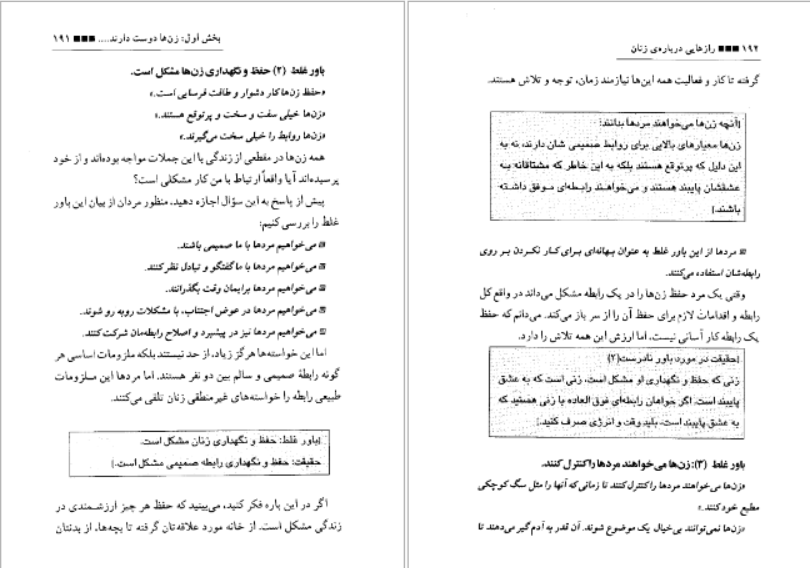 بخش اول: زن‌ها دوست دارند.... ■■■ ۱۹۱
باور غلط (۲) حفظ و نگهداری زن‌ها مشکل است.
«حفظ زن‌ها کار دشوار و طاقت فرسایی است.»
«زن‌ها خیلی سفت و سخت و پرتوقع هستند.»
«زن‌ها روابط را خیلی سخت می‌گیرند.»
همه زن‌ها در مقطعی از زندگی با این جملات مواجه بوده‌اند و از خود
پرسیده‌اند آیا واقعاً ارتباط با من کار مشکلی است؟
پیش از پاسخ به این سؤال اجازه دهید، منظور مردان از بیان این باور
غلط را بررسی کنیم:
می‌خواهیم مردها با ما صمیمی باشند.
می‌خواهیم مردها با ما گفتگو و تبادل نظر کنند.
می‌خواهیم مردها برایمان وقت بگذرانند.
می‌خواهیم مردها در عوض اجتناب، با مشکلات روبه رو شوند.
می‌خواهیم مردها نیز در پیشبرد و اصلاح رابطه‌مان شرکت کنند.
اما این خواسته‌ها هرگز زیاد، از حد نیستند بلکه ملزومات اساسی هر
گونه رابطهٔ صمیمی و سالم بین دو نفر هستند. اما مردها این ملزومات
طبیعی رابطه را خواسته‌های غیرمنطقی زنان تلقی می‌کنند.
[باور غلط: حفظ و نگهداری زنان مشکل است.
حقیقت: حفظ و نگهداری رابطه صمیمی مشکل است.]
اگر در این باره فکر کنید، می‌بینید که حفظ هر چیز ارزشمندی در
زندگی مشکل است. از خانه مورد علاقه‌تان گرفته تا بچه‌ها، از بدنتان
۱۹۲ ■■■ رازهایی درباره‌ی زنان
گرفته تا کار و فعالیت همه این‌ها نیازمند زمان، توجه و تلاش هستند.
[آنچه زن‌ها می‌خواهند مردها بدانند:
زن‌ها معیارهای بالایی برای روابط صمیمی شان دارند، نه به
این دلیل که پرتوقع هستند بلکه به این خاطر که مشتاقانه به
عشقشان پایبند هستند و می‌خواهند رابطه‌ای موفق داشته
باشند.]
مردها از این باور غلط به عنوان بهانه‌ای برای کار نکردن بر روی
رابطه‌شان استفاده می‌کنند.
وقتی یک مرد حفظ زن‌ها را در یک رابطه مشکل می‌داند در واقع کل
رابطه و اقدامات لازم برای حفظ آن را از سر باز می‌کند. می‌دانم که حفظ
یک رابطه کار آسانی نیست، اما ارزش این همه تلاش را دارد.
[حقیقت در مورد باور نادرست (۲)
زنی که حفظ و نگهداری او مشکل است، زنی است که به عشق
پایبند است. اگر خواهان رابطه‌ای فوق العاده با زنی هستید که
به عشق پایبند است، باید وقت و انرژی صرف کنید.]
باور غلط (۳): زن‌ها می‌خواهند مردها را کنترل کنند.
«زن‌ها می‌خواهند مردها را کنترل کنند تا زمانی که آنها را مثل سگ کوچکی
مطیع خود کنند.»
«زن‌ها نمی‌توانند بی‌خیال یک موضوع شوند. آن قدر به آدم گیر می‌دهند تا